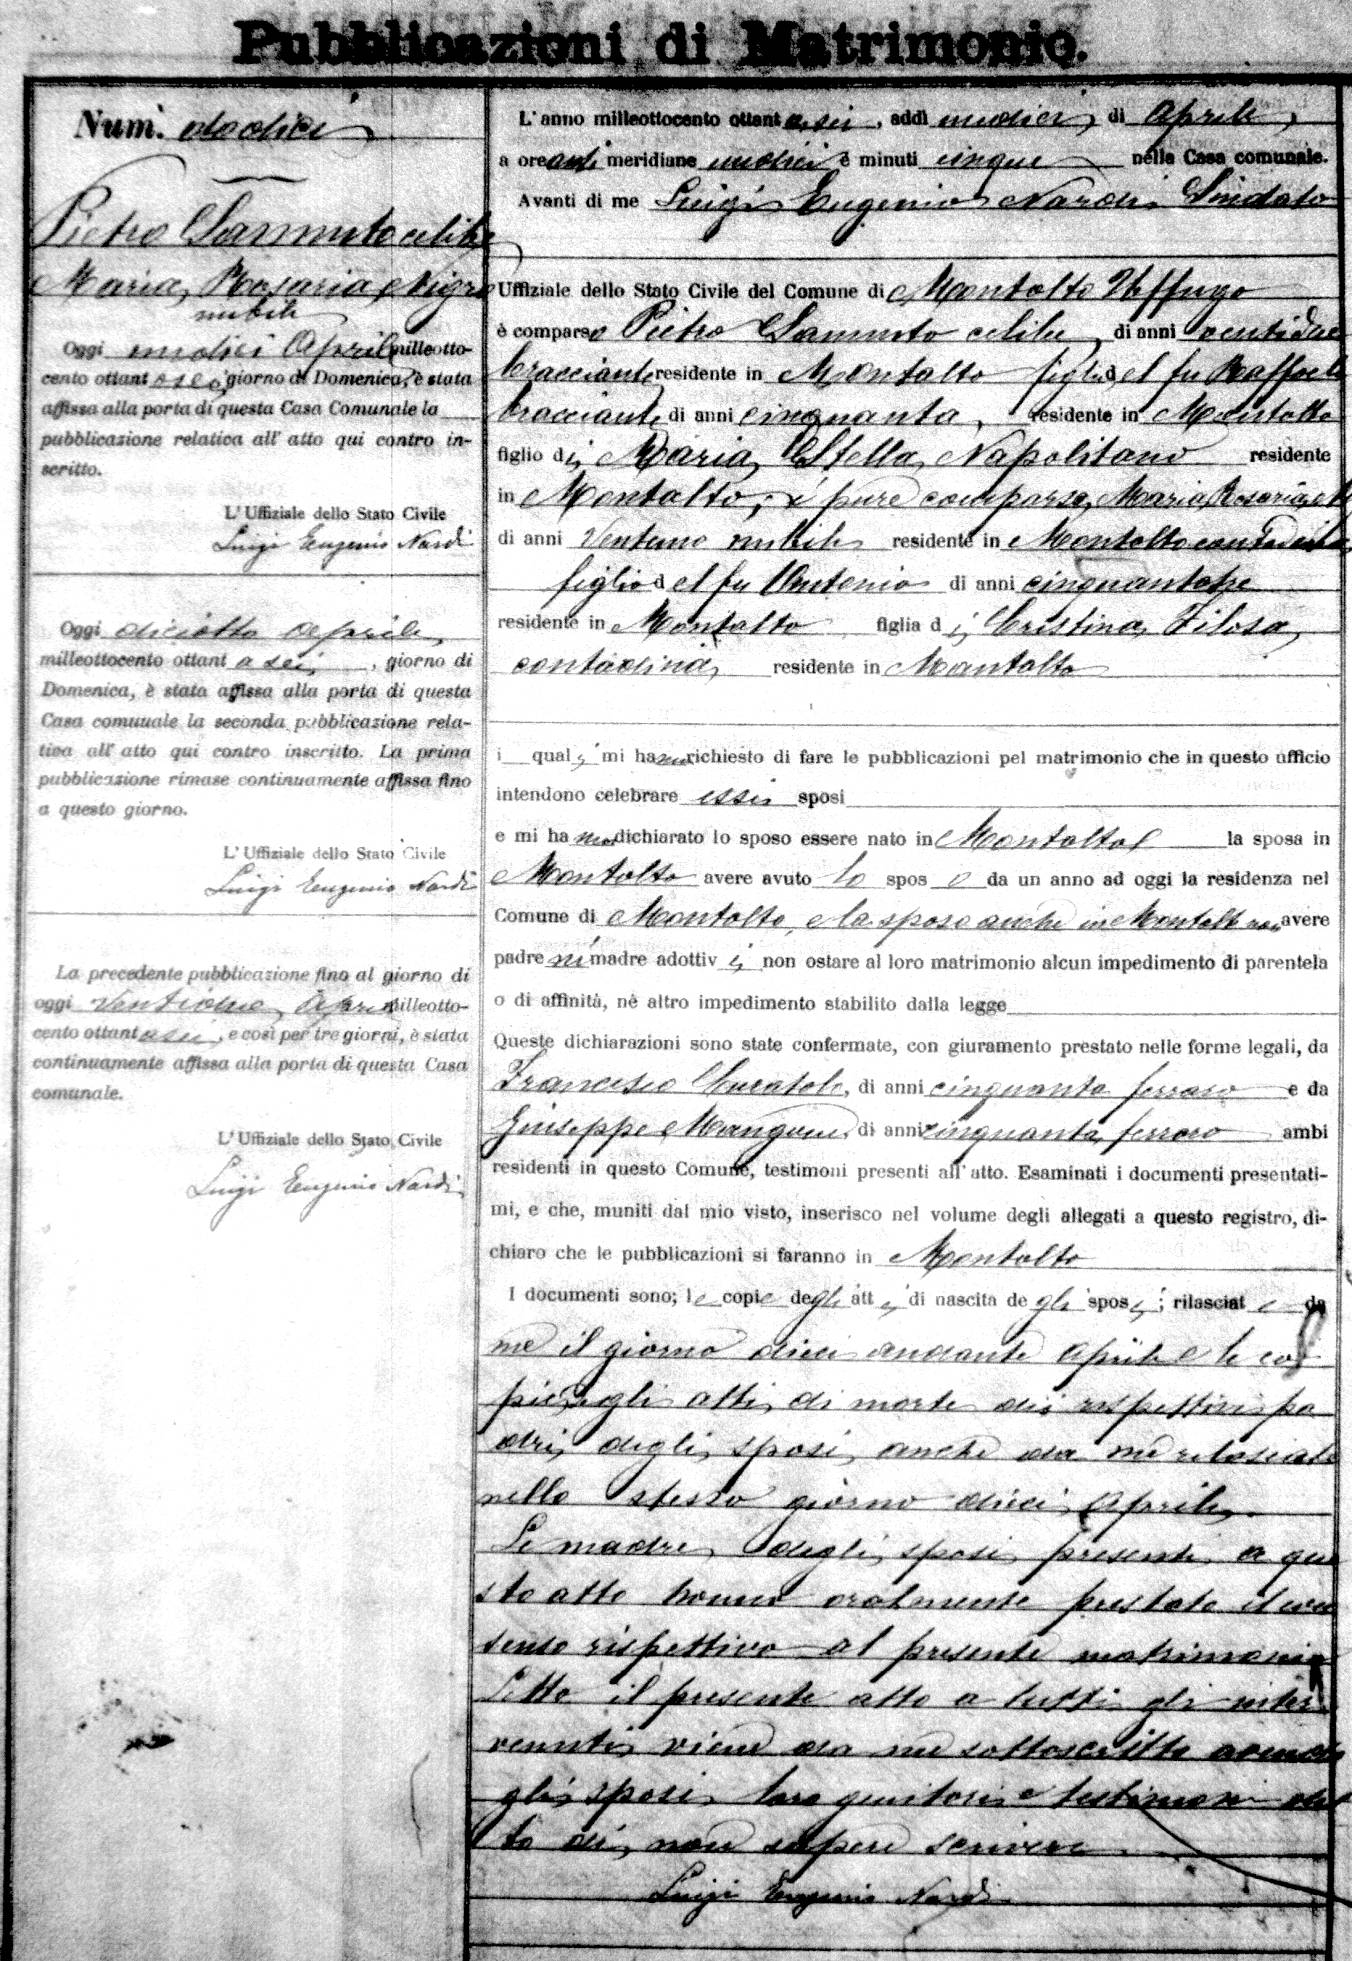 Pubblicazioni di Matrimonio.
Num. dodici
Pietro Sammuto celibe
Maria Rosaria Nigro
nubile
Oggi undici Aprile milleotto-
cento ottantasei, giorno di Domenica, è stata
affissa alla porta di questa Casa Comunale la
pubblicazione relativa all' atto qui contro in-
scritto.
L' Uffiziale dello Stato Civile
Luigi Eugenio Nardi
Oggi diciotto Aprile
milleottocento ottant a sei, giorno di
Domenica, è stata affissa alla porta di questa
Casa comunale la seconda pubblicazione rela-
tiva all' atto qui contro inscritto. La prima
pubblicazione rimase continuamente affissa fino
a questo giorno.
L' Uffiziale dello Stato Civile
Luigi Eugenio Nardi
La precedente pubblicazione fino al giorno di
oggi Ventuno Aprile milleotto-
cento ottantasei, e così per tre giorni, è stata
continuamente affissa alla porta di questa Casa
comunale.
L' Uffiziale dello Stato Civile
Luigi Eugenio Nardi
L' anno milleottocento ottantasei, addì undici di Aprile,
a ore anti meridiane undici e minuti cinque nella Casa comunale.
Avanti di me Luigi Eugenio Nardi Sindaco
Uffiziale dello Stato Civile del Comune di Montalto Uffugo
è comparso Pietro Sammuto celibe, di anni ventidue
bracciante residente in Montalto figlio del fu Raffaele
bracciante di anni cinquanta, residente in Montalto
figlio di Maria Stella Napolitano residente
in Montalto; è pure comparsa Maria Rosaria
di anni Ventuno nubile residente in Montalto contadina
figlio del fu Antonio di anni cinquantatre
residente in Montalto figlia di Cristina Filosa
contadina residente in Montalto
i quali mi hanno richiesto di fare le pubblicazioni pel matrimonio che in questo ufficio
intendono celebrare essi sposi
e mi hanno dichiarato lo sposo essere nato in Montalto la sposa in
Montalto avere avuto lo spos o da un anno ad oggi la residenza nel
Comune di Montalto, e la sposa anche in Montalto non avere
padre nè madre adottiv i, non ostare al loro matrimonio alcun impedimento di parentela
o di affinità, nè altro impedimento stabilito dalla legge
Queste dichiarazioni sono state confermate, con giuramento prestato nelle forme legali, da
Francesco, di anni cinquanta ferraro e da
Giuseppe Mangone, di anni cinquanta ferraro ambi
residenti in questo Comune, testimoni presenti all' atto. Esaminati i documenti presentati-
mi, e che, muniti dal mio visto, inserisco nel volume degli allegati a questo registro, di-
chiaro che le pubblicazioni si faranno in Montalto
I documenti sono; le copie degli atti di nascita de gli sposi; rilasciat e da
me il giorno dieci andante Aprile e le co
pie degli atti di morte dei rispettivi pa
dri degli sposi anche da me rilasciate
nello stesso giorno dieci Aprile.
Le madri degli sposi presenti a que
sto atto hanno oralmente prestato il con
senso rispettivo al presente matrimonio
Letto il presente atto a tutti gli inter
venuti viene da me sottoscritto avendo
gli sposi loro genitori e testimoni det
to di non sapere scrivere
Luigi Eugenio Nardi